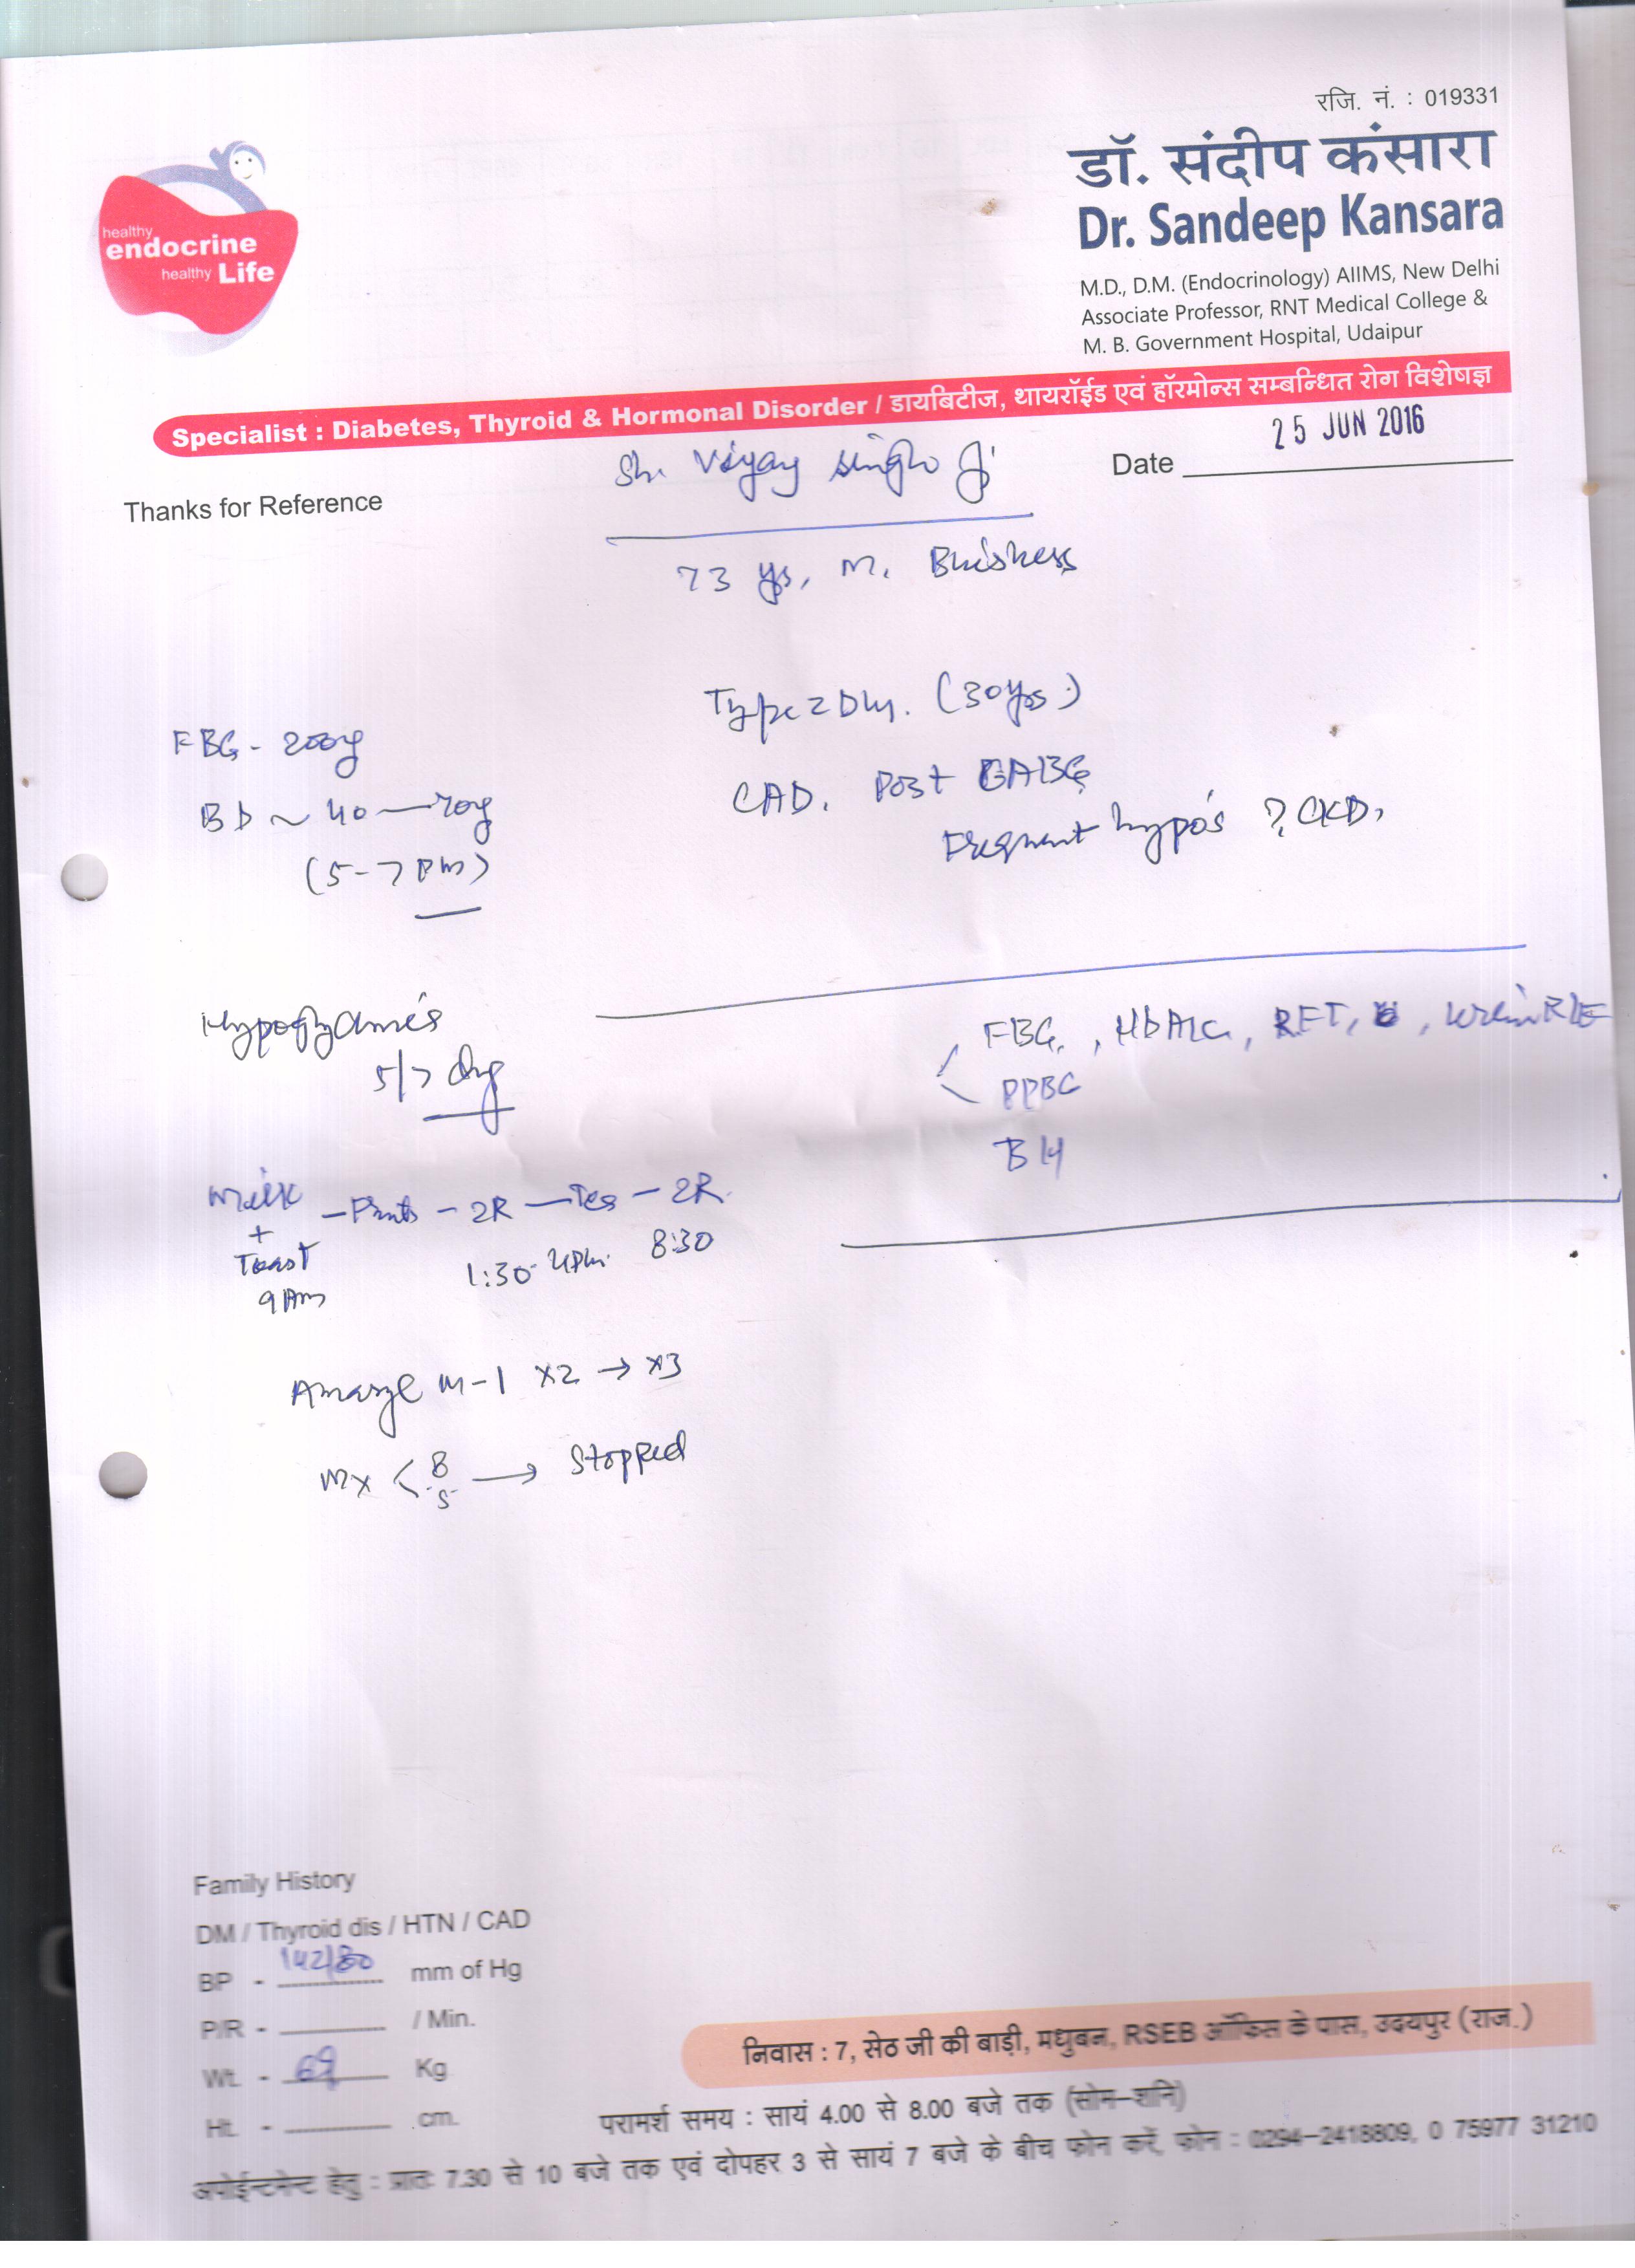 रजि. नं. : 019331
healthy
endocrine
healthy Life
डॉ. संदीप कंसारा
Dr. Sandeep Kansara
M.D., D.M. (Endocrinology) AIIMS, New Delhi
Associate Professor, RNT Medical College &
M. B. Government Hospital, Udaipur
Specialist : Diabetes, Thyroid & Hormonal Disorder / डायबिटीज, थायरॉईड एवं हॉरमोन्स सम्बन्धित रोग विशेषज्ञ
25 JUN 2016
Date
Thanks for Reference
Sh. Vijay Singh Ji
73 ys, M.
Type 2 DM. (30 yrs.)
CAD. Post CABG
Frequent hypo's ? CKD.
FBG -
BD ~ 40 —
(5-7 PM)
5/7 day
FBG, HbA1c, RFT, Urine R/E
PPBG
Milk - Fruits - 2R - Tea - 2R
+
Toast 1:30 4PM. 8:30
9 AM
Amaryl M-1 x2 → x3
Mx < 8 → Stopped
5
Family History
DM / Thyroid dis / HTN / CAD
BP - 142/80 mm of Hg
P/R - / Min.
Wt. - 69 Kg
Ht. - cm.
निवास : 7, सेठ जी की बाड़ी, मधुबन, RSEB ऑफिस के पास, उदयपुर (राज.)
परामर्श समय : सायं 4.00 से 8.00 बजे तक (सोम–शनि)
अपोईन्टमेन्ट हेतु : प्रातः 7.30 से 10 बजे तक एवं दोपहर 3 से सायं 7 बजे के बीच फोन करें, फोन : 0294–2418809, 0 75977 31210